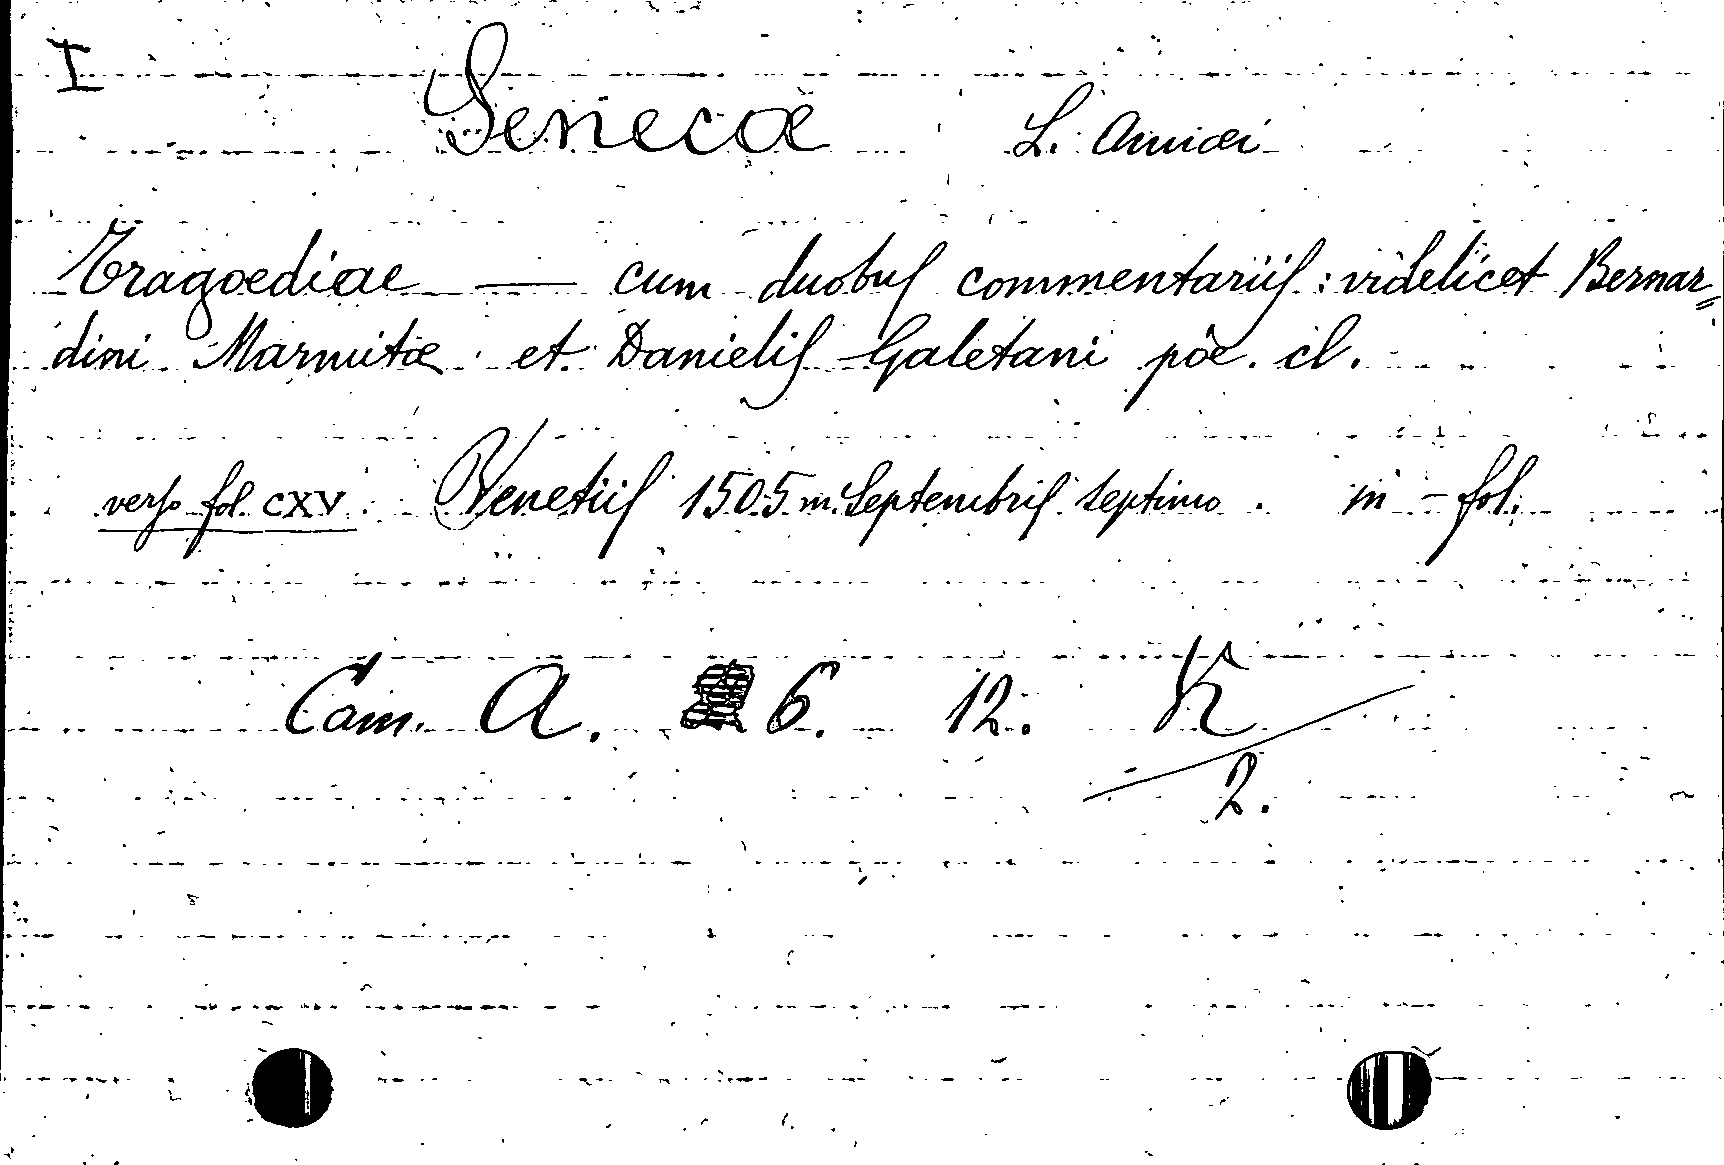 I
Senecæ L. Annæi
Tragoediae — cum duobus commentariis: videlicet Bernar=
dini Marmitæ et Danielis Galetani pöe. cl.
verso fol. CXV Venetiis 1505 m. Septembris septimo. in-fol.
Cam. A. 6. 12. K
2.